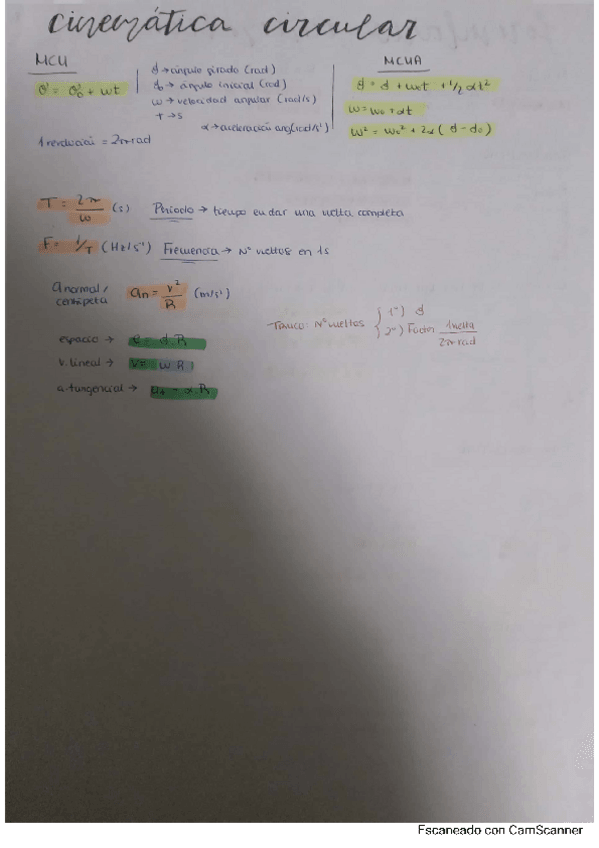 cinemática circular
MCU
MCUA
ϑ = ϑ₀ + ωt
ϑ → ángulo girado (rad)
ϑ₀ → ángulo inicial (rad)
ω → velocidad angular (rad/s)
t → s
α → aceleración ang(rad/s²)
ϑ = ϑ + ω₀t + 1/2 αt²
ω = ω₀ + αt
ω² = ω₀² + 2α (ϑ - ϑ₀)
1 revolución = 2π rad
T = 2π/ω (s) Período → tiempo en dar una vuelta completa
F = 1/T (Hz/s⁻¹) Frecuencia → Nº vueltas en 1s
a normal/centrípeta an = v²/R (m/s²)
Truco Nº vueltas { 1º) ϑ
2º) Factor 1 vuelta/2π rad
espacio → e = ϑ·R
v. lineal → v = ω·R
a. tangencial → at = α·R
Escaneado con CamScanner